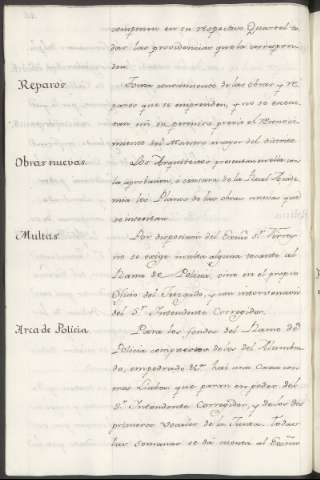 cen en su respectivo Quartel, y
dar las providencias que le correspon-
den.
Reparos. Toma conocimiento de las obras y re-
paros que se emprenden, y no se execu-
tan sin su permiso previo el reconoci-
miento del Maestro mayor del distrito.
Obras nuevas. Los Arquitectos presentan en ella con
la aprobacion, o censura de la Real Acade-
mia los Planos de las obras nuevas que
se intentan.
Multas. Por disposicion del Exmô Sr. Virrey
no se exige multa alguna tocante al
Ramo de Policia, sino en el propio
Oficio del Juzgado, y con intervencion
del Sr. Intendente Corregidor.
Arca de Policia. Para los fondos del Ramo de
Policia de los del Alumbra-
do, empedrado &a. hai una Caxa con
tres Llabes que paran en poder del
Sr. Intendente Corregidor, y de los dos
primeros Vocales de la Junta. Todas
las semanas se da cuenta al Exmô